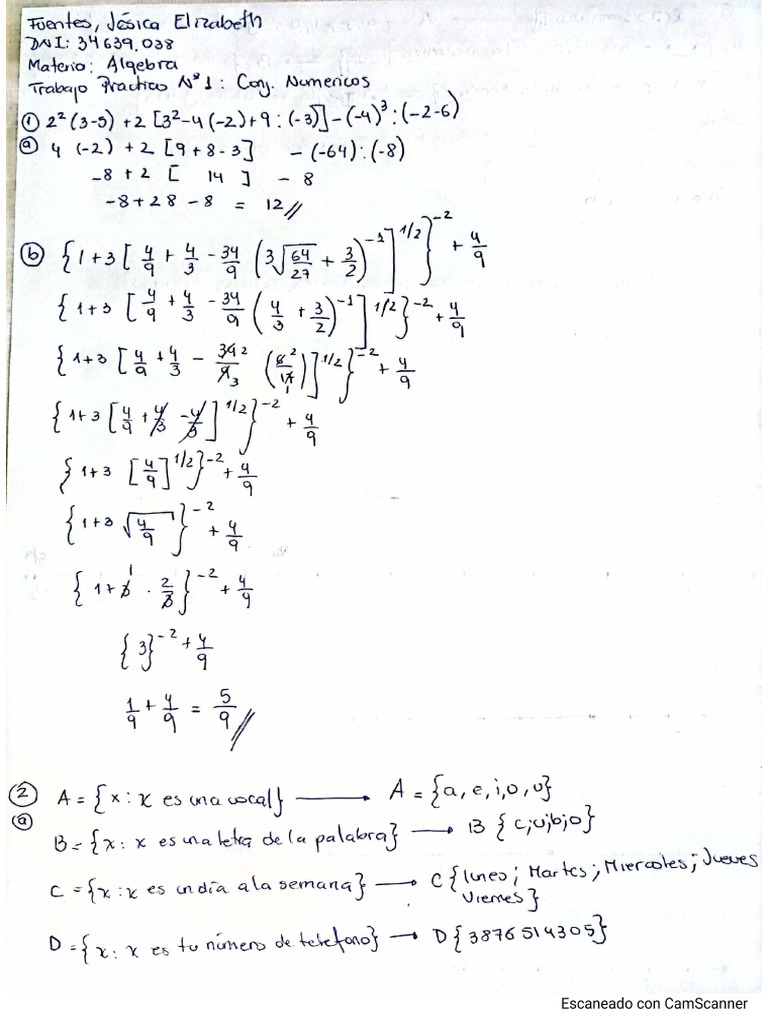 Fuentes, Jésica Elizabeth
DNI: 34639.038
Materia: Algebra
Trabajo Practico N° 1: Conj. Numericos
① 2²(3-5) + 2 [3²-4(-2)+9 : (-3)] - (-4)³ : (-2-6)
ⓐ 4 (-2) + 2 [9+8-3] - (-64) : (-8)
-8 + 2 [ 14 ] - 8
-8+28-8 = 12 //
ⓑ {1+3 [4/9 + 4/3 - 34/9 (³√64/27 + 3/2)⁻¹]^1/2}⁻² + 4/9
{1+3 [4/9 + 4/3 - 34/9 (4/3 + 3/2)⁻¹]^1/2}⁻² + 4/9
{1+3 [4/9 + 4/3 - 34²/9₃ (6²/17₁)]^1/2}⁻² + 4/9
{1+3 [4/9 + 4/3 - 4/3]^1/2}⁻² + 4/9
{1+3 [4/9]^1/2}⁻² + 4/9
{1+3 √4/9}⁻² + 4/9
{1+3¹ . 2/3}⁻² + 4/9
{3}⁻² + 4/9
1/9 + 4/9 = 5/9 //
② A = {x: x es una vocal} → A = {a, e, i, o, u}
ⓐ
B = {x: x es una letra de la palabra} → B {c;u;b;o}
C = {x: x es un día a la semana} → C {lunes; Martes; Miercoles; Jueves
Viernes}
D = {x: x es tu número de telefono} → D {3876514305}
Escaneado con CamScanner